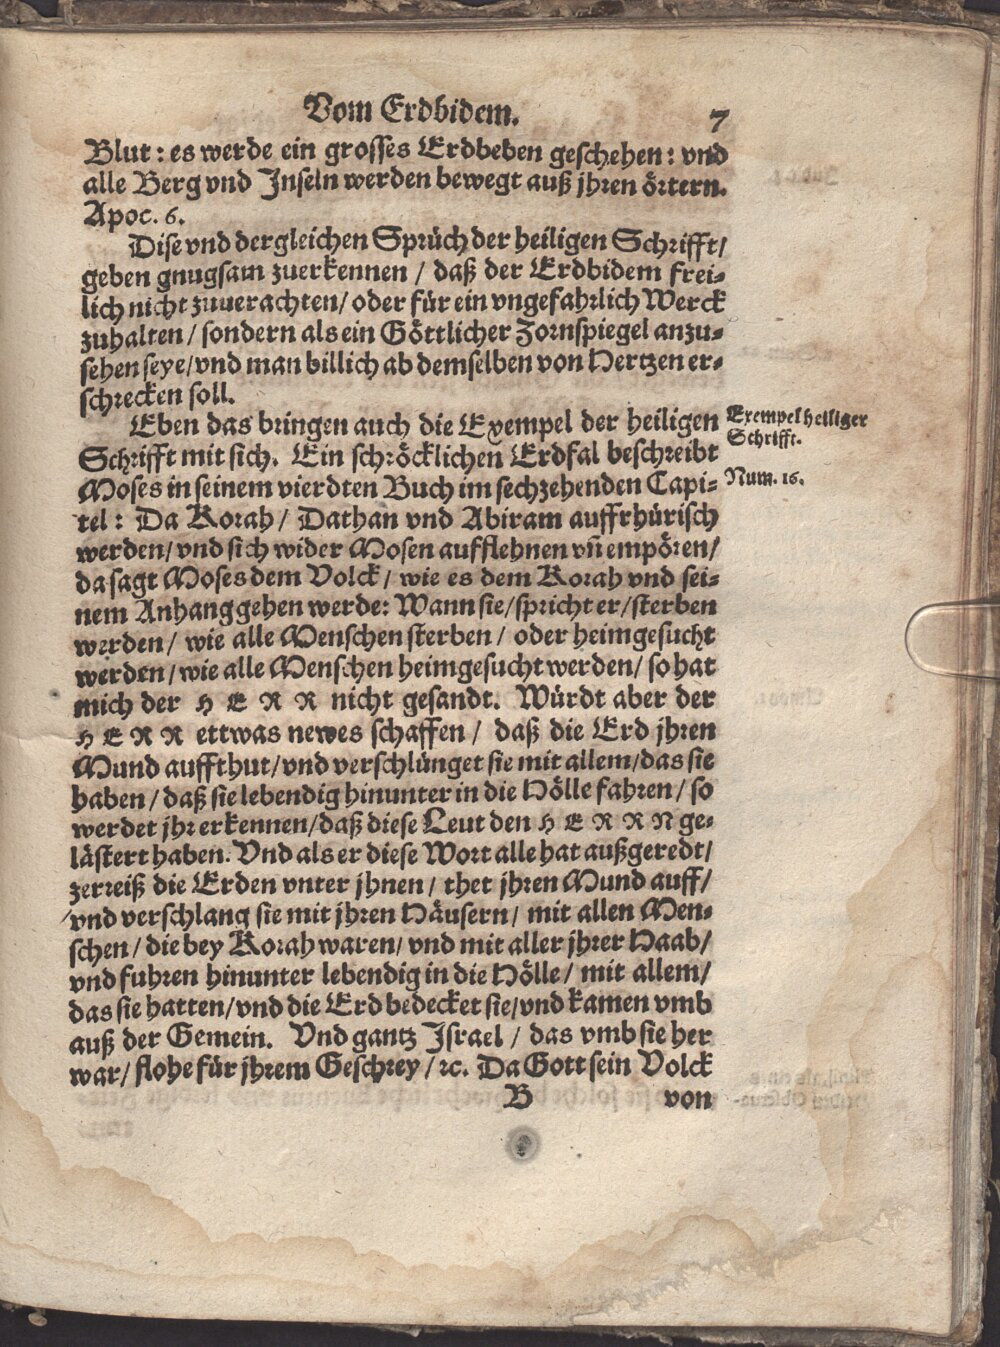 Vom Erdbidem. 7
Blut: es werde ein grosses Erdbeben geschehen: vnd
alle Berg vnd Inseln werden bewegt auß jhren örtern.
Apoc. 6.
Dise vnd dergleichen Sprüch der heiligen Schrifft/
geben gnugsam zuerkennen / daß der Erdbidem frei-
lich nicht zuuerachten/ oder für ein vngefahrlich Werck
zuhalten / sondern als ein Göttlicher Zornspiegel anzu-
sehen seye/ vnd man billich ab demselben von Hertzen er-
schrecken soll.
Eben das bringen auch die Exempel der heiligen
Exempel heiliger
Schrifft.
Schrifft mit sich. Ein schröcklichen Erdfal beschreibt
Moses in seinem vierdten Buch im sechzehenden Capi-
Num. 16.
tel: Da Korah/ Dathan vnd Abiram auffrhürisch
werden/ vnd sich wider Mosen aufflehnen vñ empören/
da sagt Moses dem Volck/ wie es dem Korah vnd sei-
nem Anhang gehen werde: Wann sie/ spricht er/ sterben
werden/ wie alle Menschen sterben/ oder heimgesucht
werden/ wie alle Menschen heimgesucht werden/ so hat
mich der HERR nicht gesandt. Würdt aber der
HERR ettwas newes schaffen/ daß die Erd jhren
Mund auffthut/ vnd verschlünget sie mit allem/ das sie
haben/ daß sie lebendig hinunter in die Hölle fahren/ so
werdet jhr erkennen/ daß diese Leut den HERRN ge-
lästert haben. Vnd als er diese Wort alle hat außgeredt/
zerreiß die Erden vnter jhnen/ thet jhren Mund auff/
vnd verschlang sie mit jhren Häusern/ mit allen Men-
schen/ die bey Korah waren/ vnd mit aller jhrer Haab/
vnd fuhren hinunter lebendig in die Hölle/ mit allem/
das sie hatten/ vnd die Erd bedecket sie/ vnd kamen vmb
auß der Gemein. Vnd gantz Israel/ das vmb sie her
war/ flohe für jhrem Geschrey/ ꝛc. Da Gott sein Volck
B von